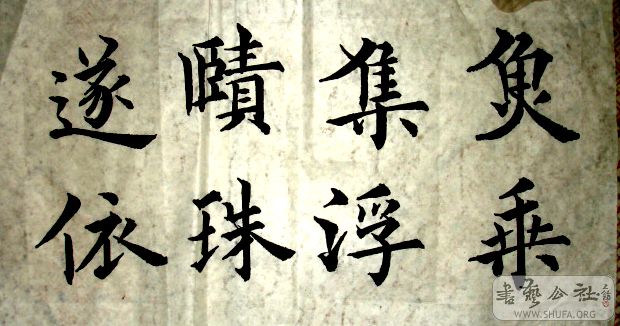 魚乘
集浮
賾珠
遂依
書藝公社
WWW.SHUFA.ORG